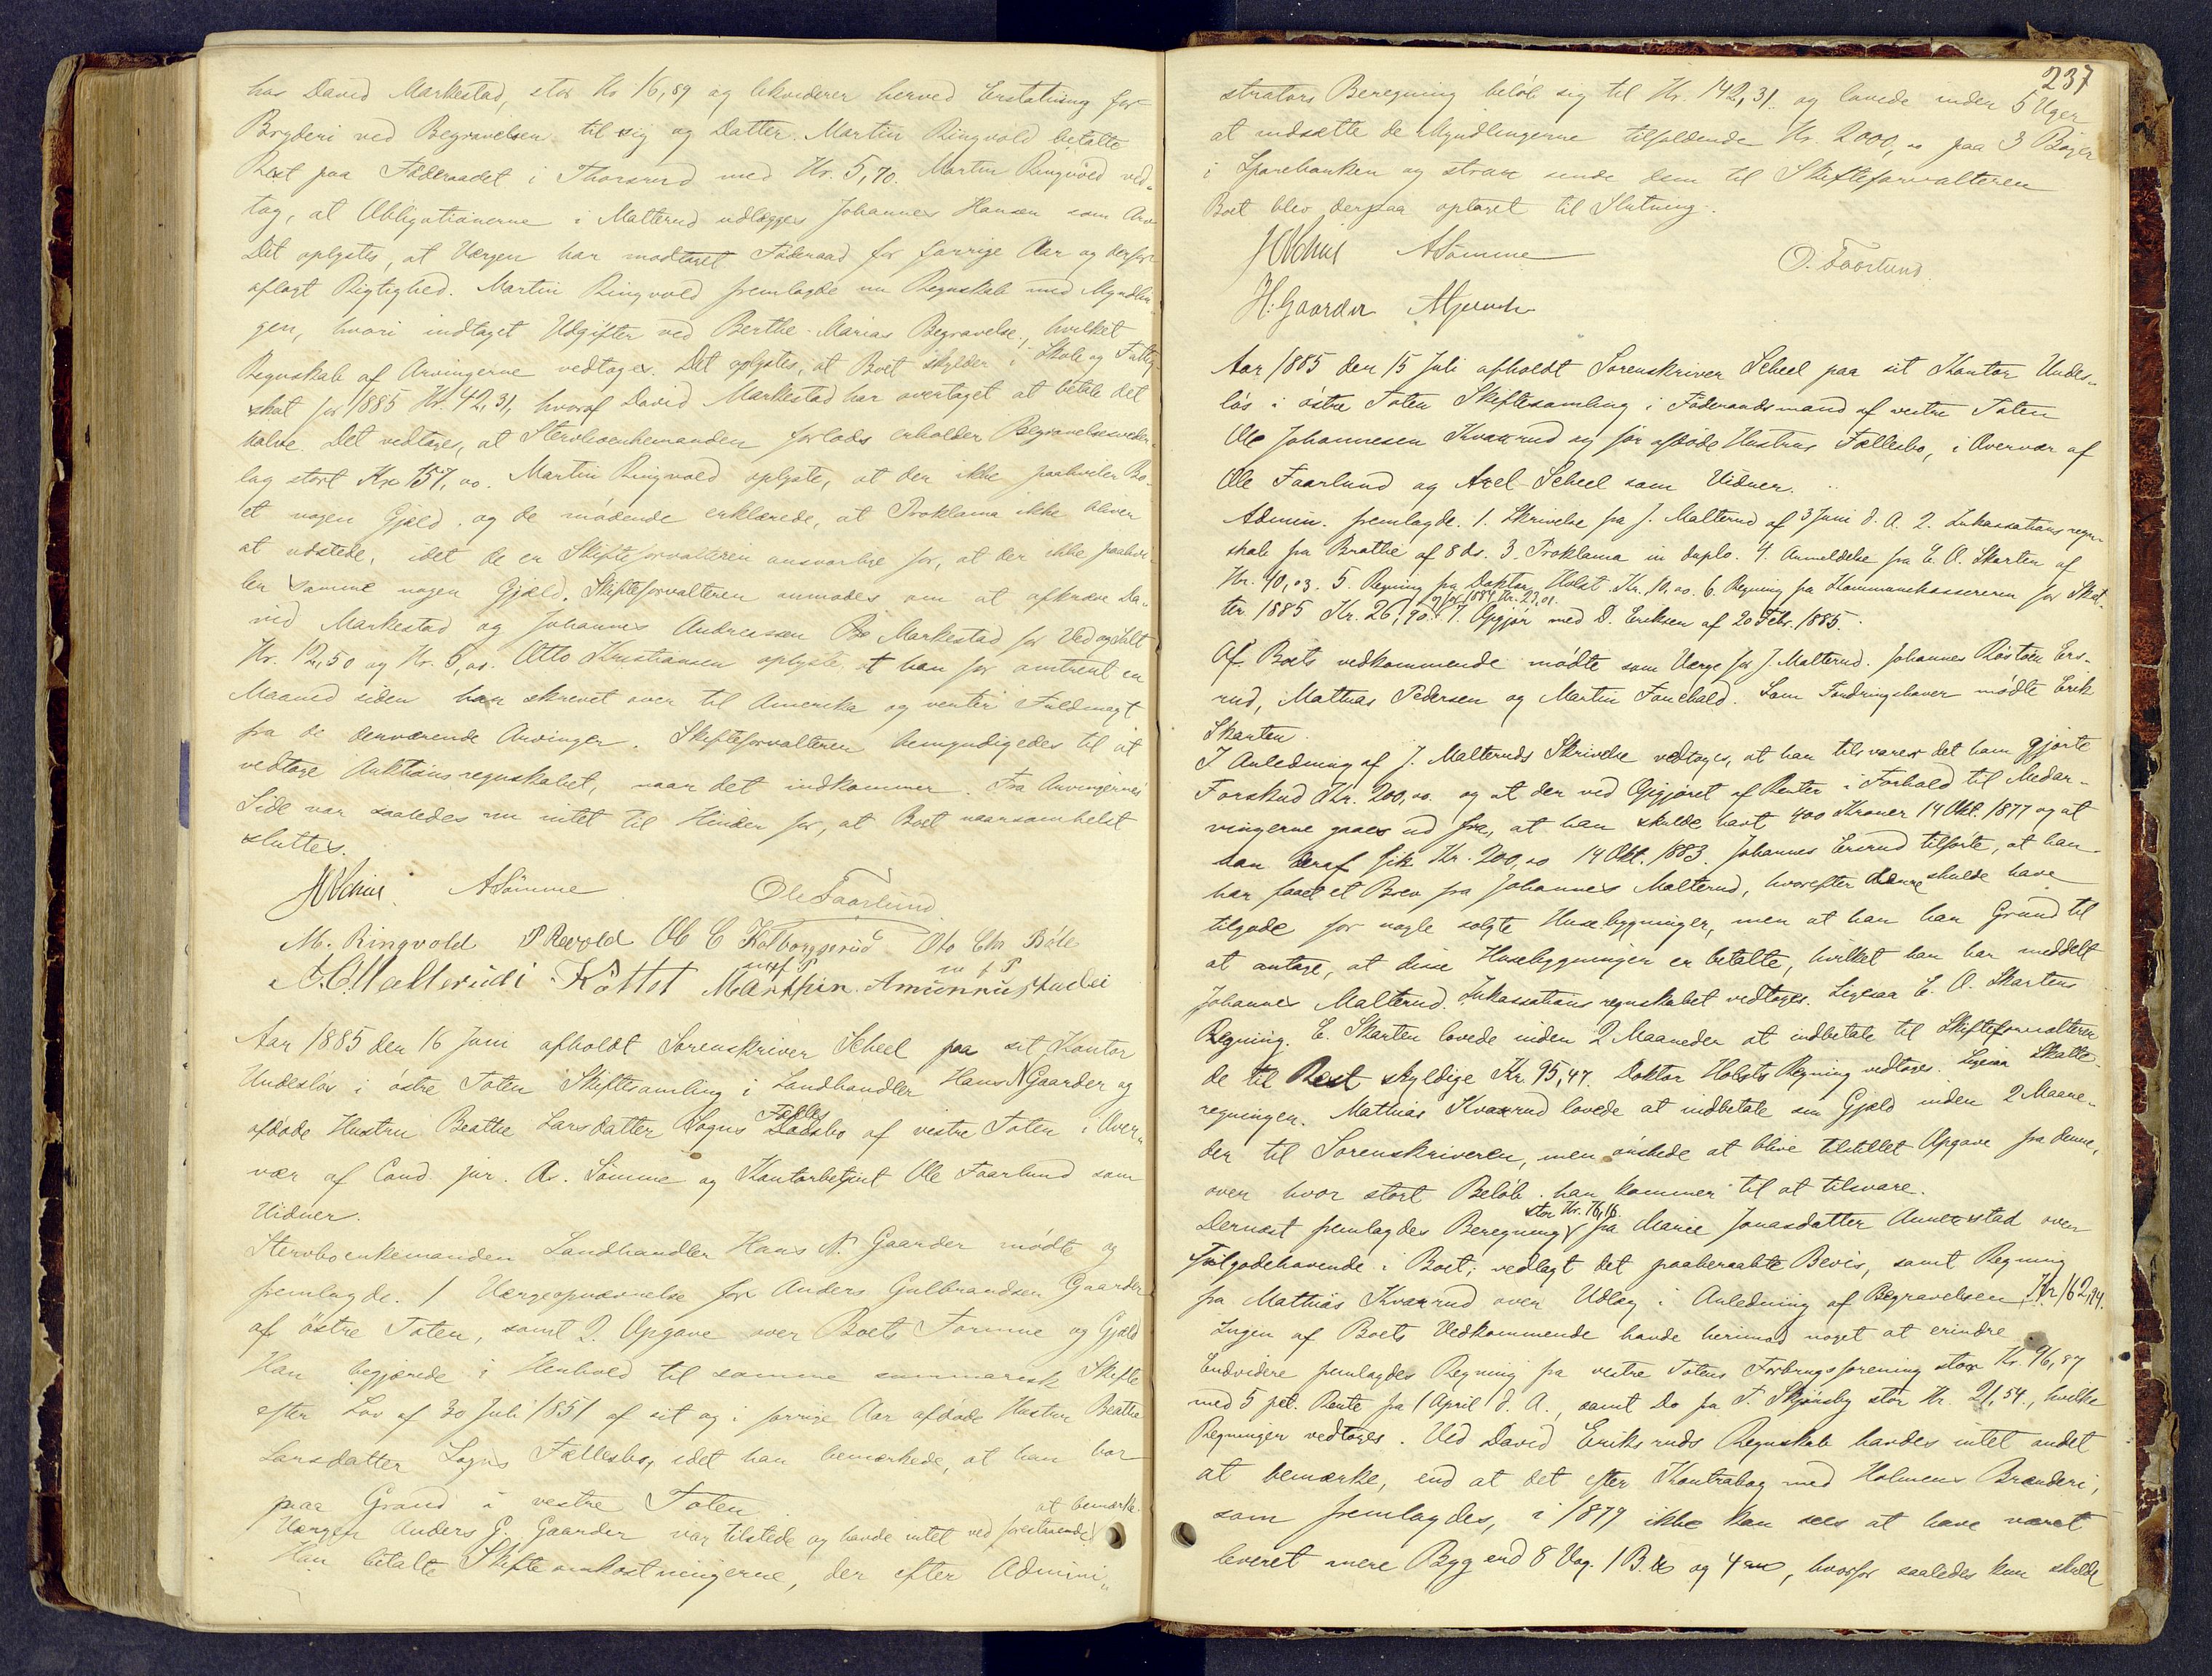 has David Markestad, stor Kr 16,89 og likviderer herved Erstatning for
Bryderi ved Begravelsen til sig og Datter. Martin Ringvold betalte
Rest paa Føderaadet i Thorsrud med Kr. 5,70. Martin Ringvold ved-
tog, at Obligationerne i Malterud udlægges Johannes Hansen som Arv
Det oplystes, at Værgen har modtaget Föderaad for forrige Aar og derfor
aflagt Rigtighed. Martin Ringvold fremlagde nu Regnskab med Myndlin
gen, hvori indtaget Udgifter ved Berthe Marias Begravelse, hvilket
Regnskab af Arvingerne vedtoges. Det oplystes, at Boet skylder i Skole og Fattig
skat for 1885 Kr. 42,31, hvoraf David Markestad har overtaget at betale det
halve. Det vedtoges, at Stervboenkemanden forlods erholder Begravelsesveder-
lag stort Kr 157,00. Martin Ringvold oplyste, at der ikke paahviler Bo-
et nogen Gjæld, og de mödende erklærede, at Proklama ikke bliver
at udstede, idet de er Skifteforvalteren ansvarlige for, at der ikke paahvi-
ler samme nogen Gjæld. Skifteforvalteren anmodes om at afkræve Da-
vid Markestad og Johannes Andreassen Markestad for Ved og Salt
Kr. 12,50 og Kr. 5,00. Otto Kristiansen oplyste at han for omtrent en
Maaned siden har skrevet over til Amerika og venter Fuldmagt
fra de derværende Arvinger. Skifteforvalteren bemyndigedes til at
vedtage Auktionsregnskabet, naar det indkommer. Fra Arvingernes
Side var saaledes nu intet til Hinder for, at Boet naarsomhelst
sluttes.
A Sömme Ole Faarlund
M. Ringvold P Revold Ole C Kolborgsrud Oto Chr Böle
m f P m f P
Aar 1885 den 16 Juni afholdt Sorenskriver Scheel paa sit Kontor
Undeslös i östre Toten Skiftesamling i Landhandler Hans N Gaarder og
Fælles
afdöde Hustru Beathe Larsdatter Sogns Dödsbo af vestre Toten i Over-
vær af Cand. jur. A. Sömme og Kontorbetjent Ole Faarlund som
Vidner.
Stervboenkemanden Landhandler Hans N. Gaarder mödte og
fremlagde. 1 Værgeopnævnelse for Anders Gulbrandsen Gaarder
af östre Toten, samt 2. Opgave over Boets Formue og Gjæld
Han begjærede i Henhold til samme summarisk Skifte
efter Lov af 30 Juli 1851 af sit og i forrige Aar afdöde Hustru Beathe
Larsdatter Sogns Fællesbo, idet han bemærkede, at han bor
paa Grand i vestre Toten.
at bemærke.
Værgen Anders G. Gaarder var tilstede og havde intet ved forestaaende
Han betalte Skifteomkostningerne, der efter Admini-
237
strators Beregning belöb sig til Kr. 142,31 og lovede inden 5 Uger
at indsætte de Myndlingerne tilfaldende Kr. 2000,00 paa 3 Böger
i Sparebanken og straks sende dem til Skifteforvalteren
Boet blev derpaa optaget til Slutning.
A Sömme O. Faarlund.
H. Gaarder
Aar 1885 den 15 Juli afholdt Sorenskriver Scheel paa sit Kontor Undes-
lös i östre Toten Skiftesamling i Föderaadsmand af vestre Toten
Ole Johannesen Kvaxrud og för afdöde Hustrus Fællesbo, i Overvær af
Ole Faarlund og Axel Scheel som Vidner.
Admin. fremlagde. 1. Skrivelse fra J. Malterud af 3 Juni d. A. 2. Inkassationsregn-
skab fra Brathe af 8 ds. 3. Proklama in duplo. 4. Anmeldelse fra E. O. Skarten af
Kr. 40,03. 5. Regning fra Doktor Holst Kr. 10,00. 6. Regning fra Kommunekassereren for Skat-
og for 1884 Kr. 23,01.
ter 1885 Kr. 26,90. 7. Opgjör med D. Eriksen af 20 Febr. 1885.
Af Boets vedkommende mödte som Værge for J. Malterud. Johannes Röstöen Ers-
rud, Mathias Pedersen og Martin Fauchald. Som Fordringshaver mödte Erik
Skarten.
I Anledning af J. Malteruds Skrivelse vedtoges, at han tilsvarer det ham gjorte
Forskud Kr. 200,00 og at der ved Opgjöret af Renter i Forhold til Medar-
vingerne gaaes ud fra, at han skulde havt 400 Kroner 14 Okt. 1877 og at
han deraf fik Kr. 200,00 14 Okt. 1883. Johannes Ersrud tilförte, at han
har faaet et Brev fra Johannes Malterud, hvorefter denne skulde have
tilgode for nogle solgte Husebygninger, men at han har Grund til
at antage, at disse Husebygninger er betalte, hvilket han har meddelt
Johannes Malterud. Inkassationsregnskabet vedtoges. Ligesaa E. O. Skartens
Regning. E. Skarten lovede inden 2 Maaneder at indbetale til Skifteforvalteren
de til Rest skyldige Kr. 95,47. Doktor Holsts Regning vedtoges. Ligesaa Skatte-
regningen. Mathias Kvaxrud lovede at indbetale sin Gjæld inden 2 Maane-
der til Sorenskriveren, men önskede at blive tilstillet Opgave fra denne,
over hvor stort Belöb han kommer til at tilsvare.
stor Kr. 76,16
Dernæst fremlagdes Beregning fra Marie Jonasdatter Annexstad over
Tilgodehavende i Boet, vedlagt det paaberaabte Bevis, samt Regning
fra Mathias Kvaxrud over Udlæg i Anledning af Begravelsen, Kr 162,94.
Ingen af Boets Vedkommende havde herimod noget at erindre
Endvidere fremlagdes Regning fra vestre Totens Forbrugsforening stor Kr. 96,87
med 5 pct. Rente fra 1 April d. A., samt Do fra T. Skjönsby stor Kr. 21,54, hvilke
Regninger vedtoges. Ved David Eriksruds Regnskab havdes intet andet
at bemærke, end at det efter Kontrabog med Holmens Brænderi,
som fremlagdes, i 1879 ikke kan sees at have været
leveret mere Byg end 8 Vog. 1 B. og 4, hvorfor saaledes kun skulde